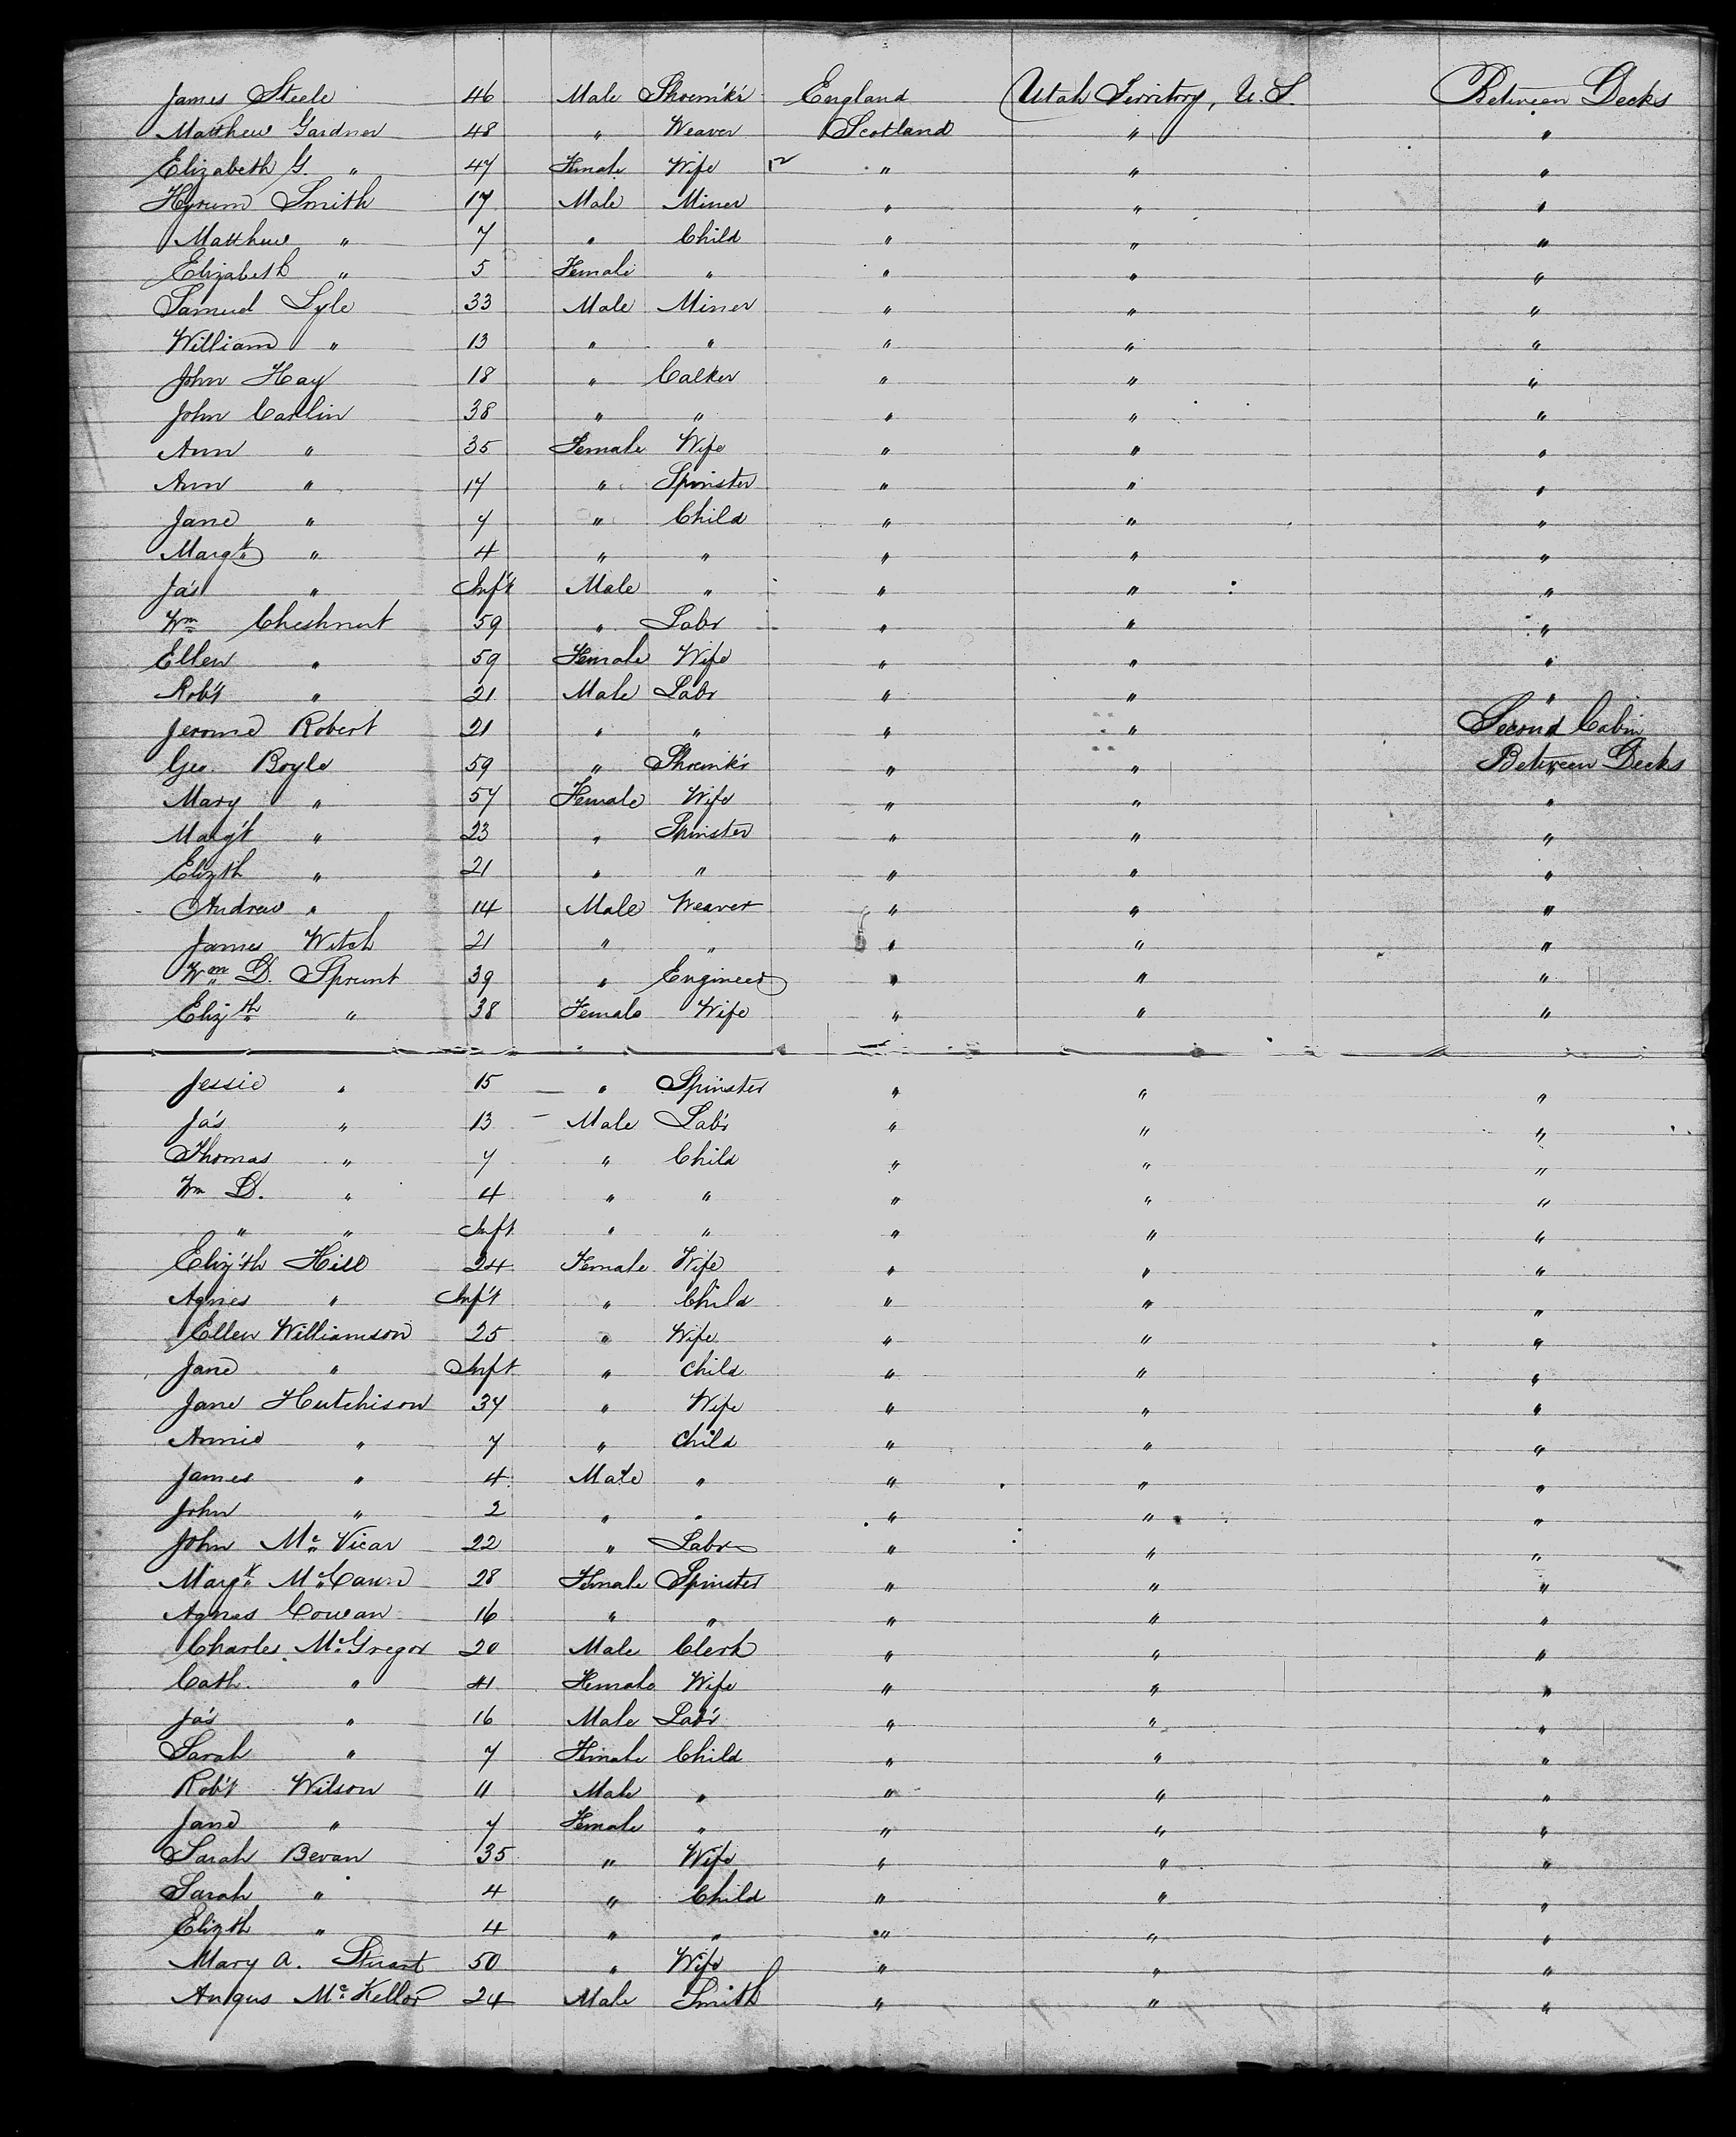 James Steele 46 Male Shoem'k'r England Utah Territory, U.S. Between Decks
Matthew Gardner 48 " Weaver Scotland " "
Elizabeth G. " 47 Female Wife " " "
Hyrum Smith 17 Male Miner " " "
Matthew " 7 " Child " " "
Elizabeth " 5 Female " " " "
Samuel Lyle 33 Male Miner " " "
William " 13 " " " " "
John Hay 18 " Calker " " "
John Carlin 38 " " " " "
Ann " 35 Female Wife " " "
Ann " 17 " Spinster " " "
Jane " 7 " Child " " "
Margt " 4 " " " " "
Ja's " Inf't Male " " " "
Wm Cheshnut 59 " Labr " " "
Ellen " 59 Female Wife " " "
Rob't " 21 Male Labr " " "
Jerome Robert 21 " " " " Second Cabin
Geo. Boyle 59 " Shoemk'r " " Between Decks
Mary " 57 Female Wife " " "
Marg't " 23 " Spinster " " "
Elizth " 21 " " " " "
Andrew " 14 Male Weaver " " "
James Witch 21 " " " " "
Wm D. Sprunt 39 " Engineer " " "
Elizth " 38 Female Wife " " "
Jessie " 15 " Spinster " " "
Ja's " 13 Male Lab'r " " "
Thomas " 7 " Child " " "
Wm D. " 4 " " " " "
" " Inft " " " " "
Eliz'th Hill 24 Female Wife " " "
Agnes " Inf't " Child " " "
Ellen Williamson 25 " Wife " " "
Jane " Inft " Child " " "
Jane Hutchison 37 " Wife " " "
Annie " 7 " Child " " "
James " 4 Male " " " "
John " 2 " " " " "
John Mc Vicar 22 " Labr " " "
Margt McCann 28 Female Spinster " " "
Agnes Cowan 16 " " " " "
Charles McGregor 20 Male Clerk " " "
Cath. " 41 Female Wife " " "
Ja's " 16 Male Lab'r " " "
Sarah " 7 Female Child " " "
Rob't Wilson 11 Male " " " "
Jane " 7 Female " " " "
Sarah Bevan 35 " Wife " " "
Sarah " 4 " Child " " "
Elizth " 4 " " " " "
Mary A. Stuart 50 " Wife " " "
Angus Mc Kellor 24 Male Smith " " "